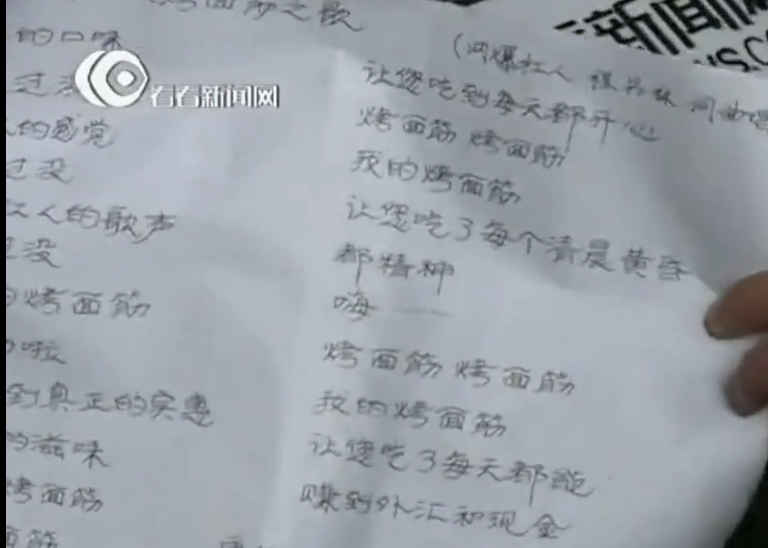 烤面筋之歌
的口味
过没
的感觉
过没
人的歌声
没
烤面筋
啦
到真正的实惠
的滋味
烤面筋
面筋
(网爆红人
同曲唱
让您吃到每天都开心
烤面筋 烤面筋
我的烤面筋
让您吃了每个清晨黄昏
都精神
嗨——
烤面筋 烤面筋
我的烤面筋
让您吃了每天都能
赚到外汇和现金
看看新闻网
新闻网